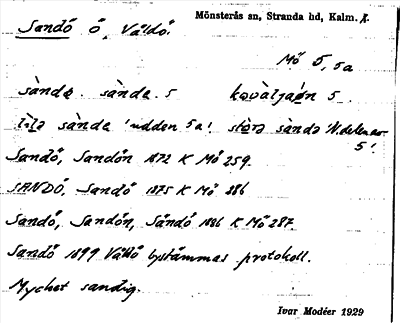 Mönsterås sn, Stranda hd, Kalm. l.
Sandö ö, Valdö.
Mö 5, 5a
sànde. sànde. 5 kovàljaön 5.
lìla sànde 'udden 5a! stòra sànde 'N. delen av
5!
Sandö, Sandön 1872 K Mö 259.
SANDÖ, Sandö 1875 K Mö 286
Sandö, Sandön, Sändö 1886 K Mö 287.
Sandö 1899 Valdö bystämmas protokoll.
Mycket sandig.
Ivar Modéer 1929